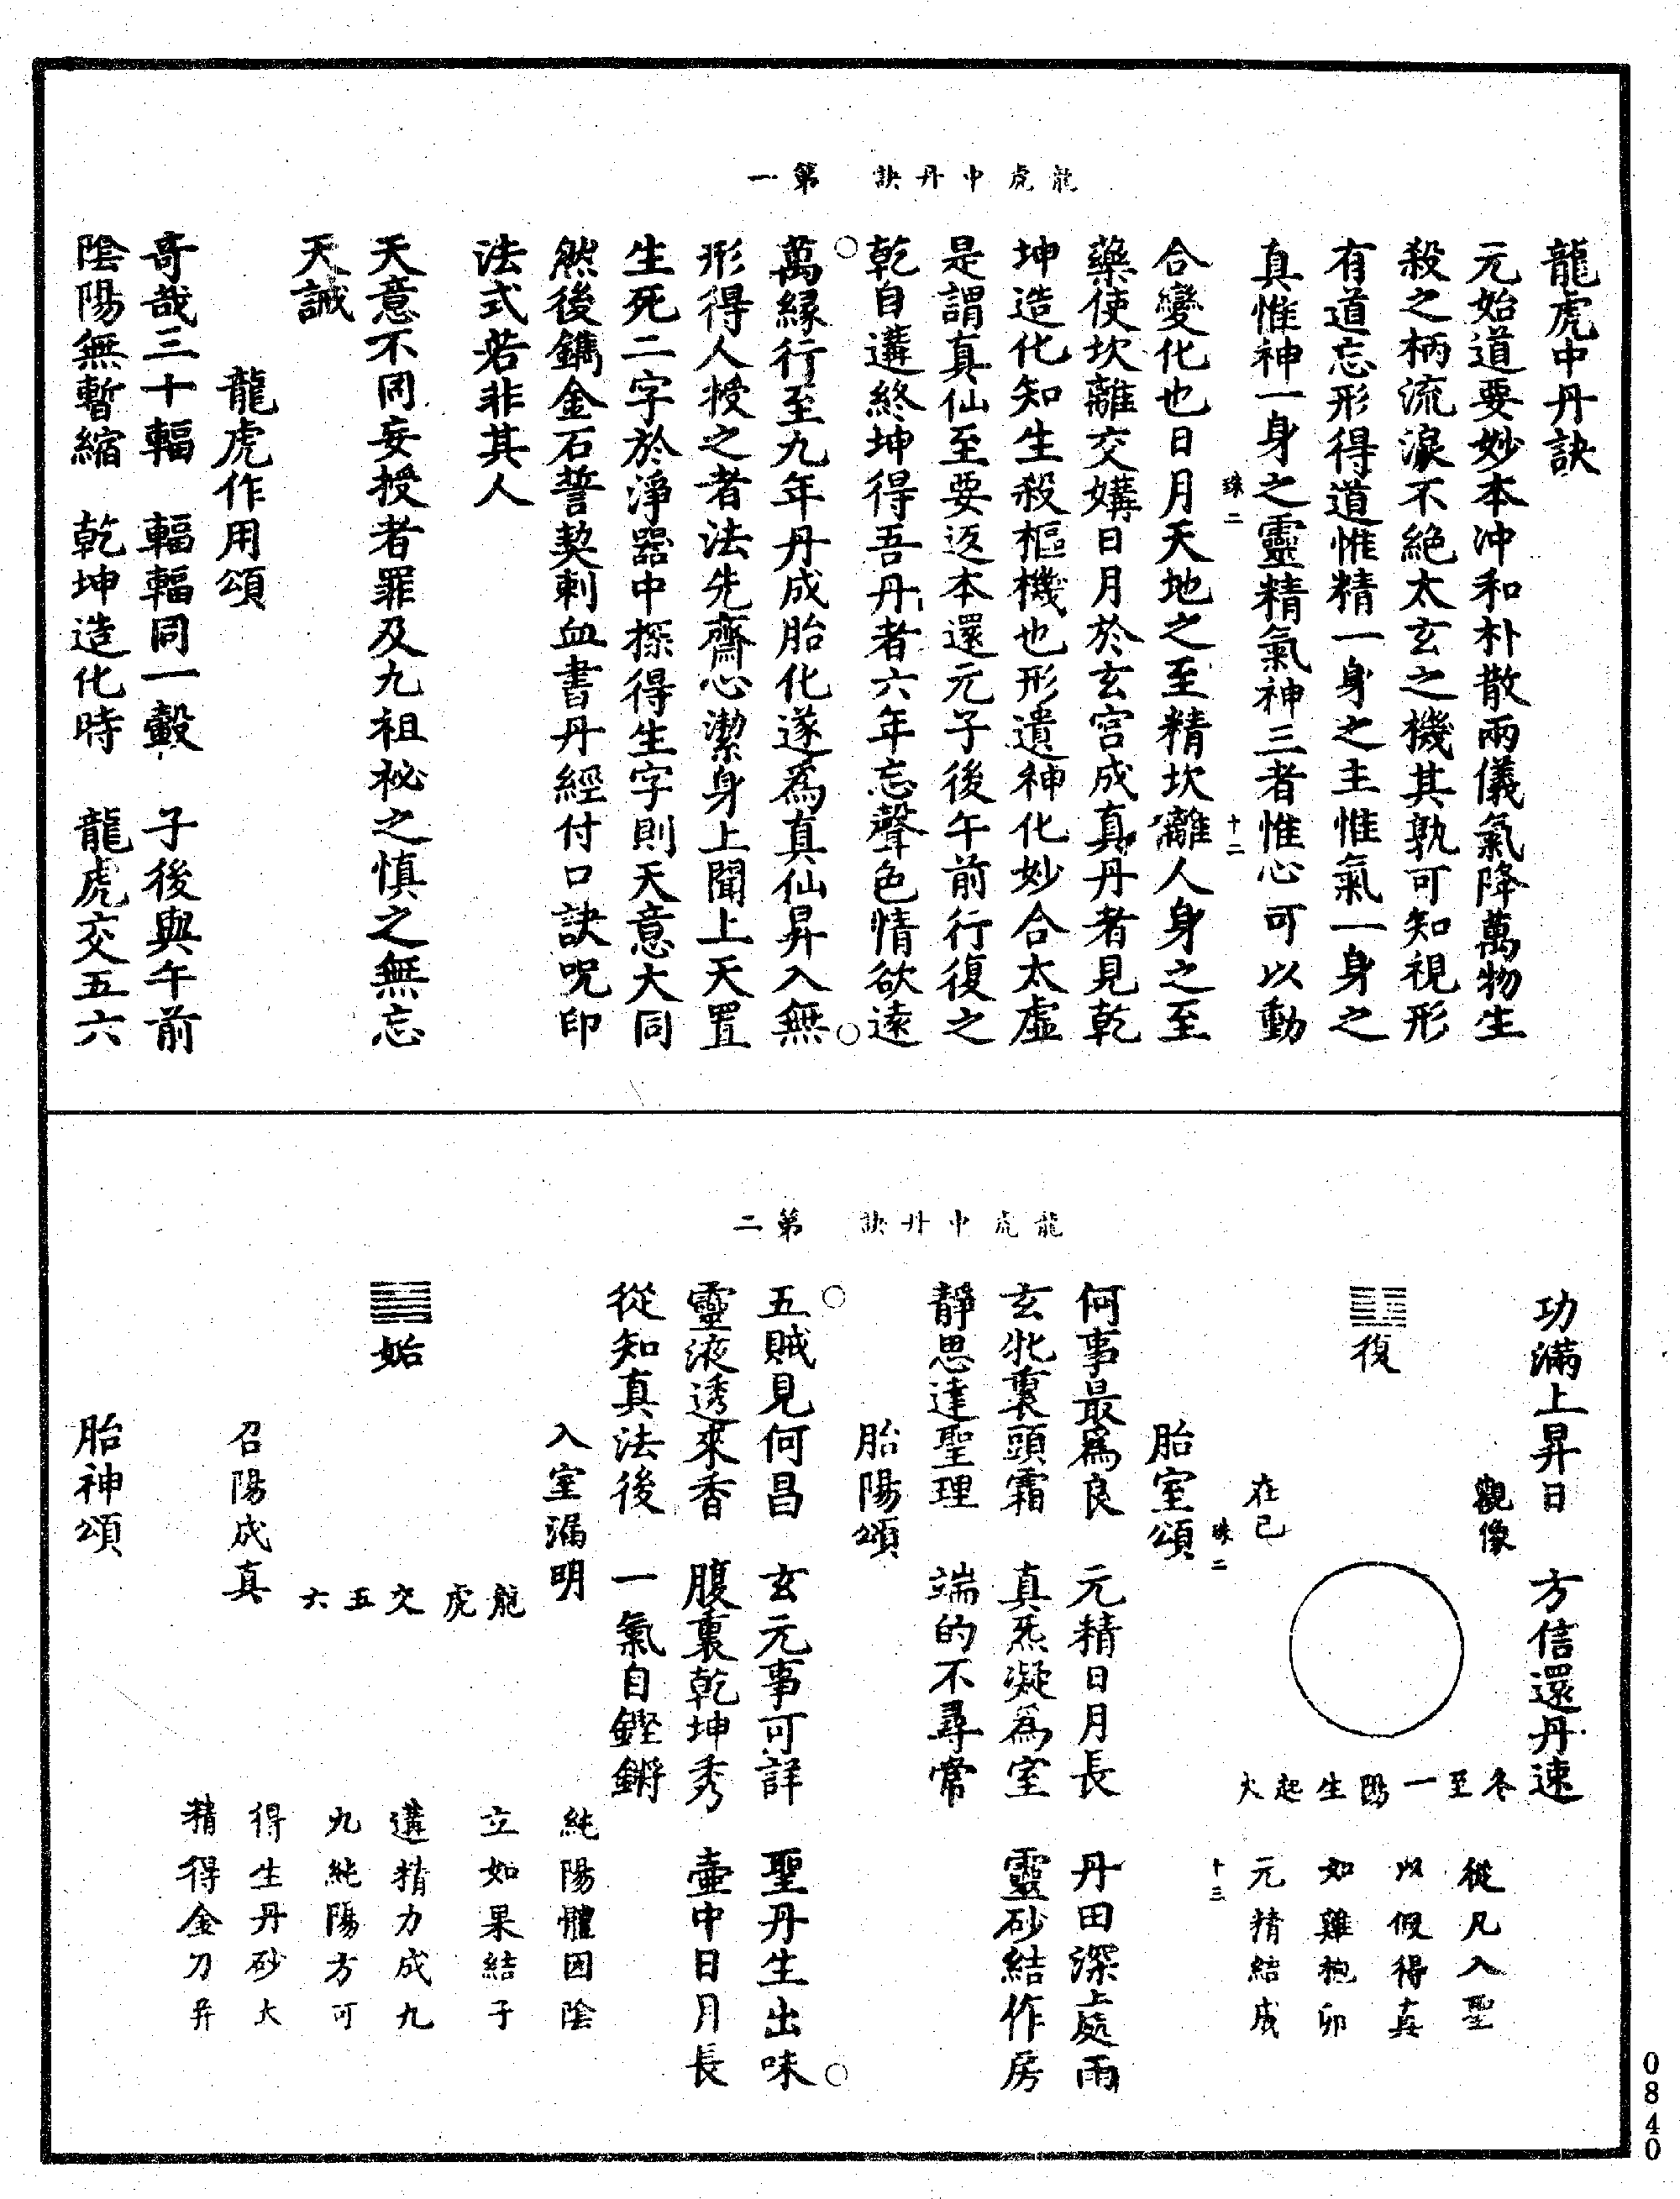 龍虎中丹訣　第一
龍虎中丹訣
元始道要妙本冲和朴散兩儀氣降萬物生
殺之柄流湶不絕太玄之機其孰可知視形
有道忘形得道惟精一身之主惟氣一身之
真惟神一身之靈精氣神三者惟心可以動
珠二　十二
合變化也日月天地之至精坎離人身之至
藥使坎離交媾日月於玄宮成真丹者見乾
坤造化知生殺樞機也形遺神化妙合太虛
是謂真仙至要返本還元子後午前行復之
乾自遘終坤得吾丹者六年忘聲色情欲遠
萬緣行至九年丹成胎化遂爲真仙昇入無
形得人授之者法先齋心潔身上聞上天置
生死二字於淨器中探得生字則天意大同
然後鐫金石誓契刺血書丹經付口訣呪印
法式若非其人
天意不同妄授者罪及九祖祕之慎之無忘
天誡
龍虎作用頌
奇哉三十輻　輻輻同一轂　子後與午前
陰陽無暫縮　乾坤造化時　龍虎交五六
龍虎中丹訣　第二
功滿上昇日　方信還丹速
觀像
䷗復
在己
冬至一陽生起火
從凡入聖
以假得真
如雞抱卵
元精結成
珠二　十三
胎室頌
何事最爲良　元精日月長　丹田深處雨
玄牝裏頭霜　真炁凝爲室　靈砂結作房
靜思達聖理　端的不尋常
胎陽頌
五賊見何昌　玄元事可詳　聖丹生出味
靈液透來香　腹裏乾坤秀　壷中日月長
從知真法後　一氣自鏗鏘
入室漏明
䷫姤
龍虎交五六
召陽成真
純陽體因陰
立如果結子
遘精力成九
九純陽方可
得生丹砂大
精得金刀昇
胎神頌
0840